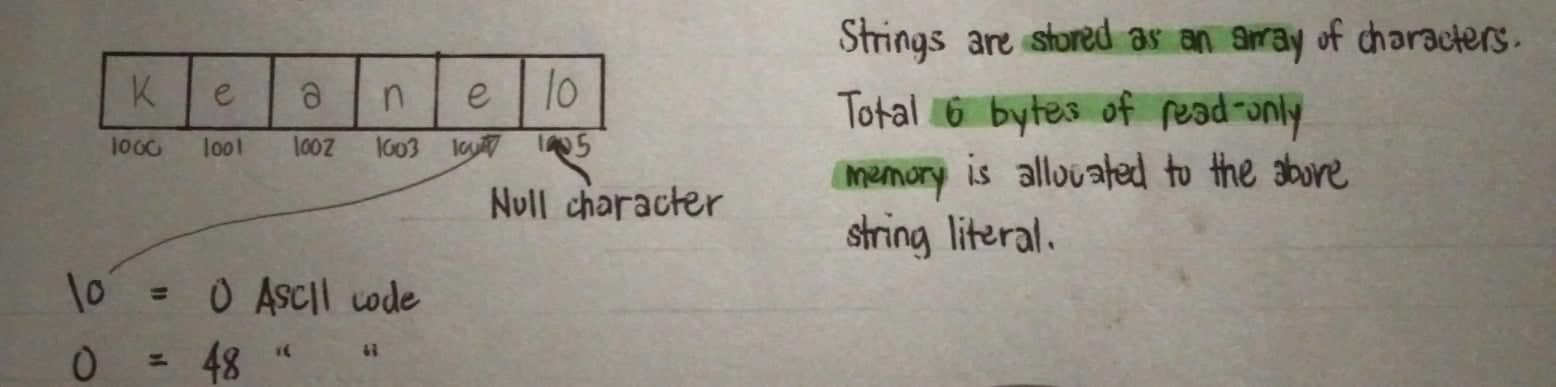 K e a n e \0
1000 1001 1002 1003 1005
Null character
\0 = 0 ASCII code
0 = 48 " "
Strings are stored as an array of characters.
Total 6 bytes of read-only
memory is allocated to the above
string literal.